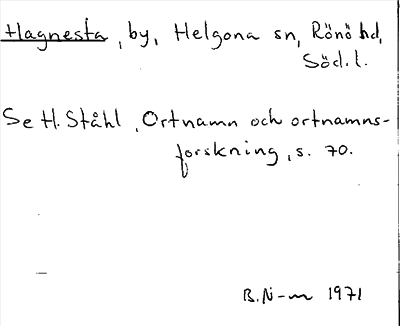 Hagnesta, by, Helgona sn, Rönö hd,
Söd.l.
Se H. Ståhl, Ortnamn och ortnamns-
forskning, s. 70.
B.N-m 1971